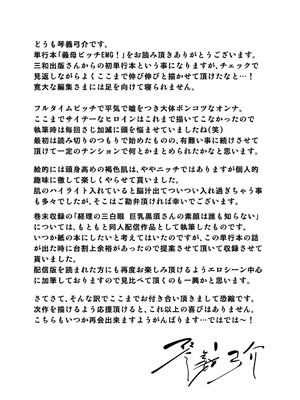 どうも琴義弓介です。
単行本「義母ビッチEMG！」をお読み頂きありがとうございます。
三和出版さんからの初単行本という事になりますが、チェックで
見返しながらよくここまで伸び伸びと描かせて頂けたなと…！
寛大な編集さまには足を向けて寝られません。
フルタイムビッチで平気で嘘をつき大体ポンコツなオンナ。
ここまでサイテーなヒロインはこれまで描いてこなかったので
執筆時は毎回さじ加減に頭を悩ませていましたね(笑)
最初は読み切りのつもりで始めたものの、有難い事に続けさせて
頂けて一定のテンションで何とかまとめられたかなと思います。
絵的には頭身高めの褐色肌は、ややニッチではありますが個人的
趣味に徹して楽しくやらせて貰いました。
肌のハイライト入れていると脳汁出てついつい入れ過ぎちゃう事
も多々でしたが、そこはご勘弁頂ければ幸いでございます。
巻末収録の「経理の三白眼 巨乳黒須さんの素顔は誰も知らない」
については、もともと同人配信作品として執筆したものです。
いつか紙の本にしたいと考えてはいたのですが、この単行本の話
が出た時に台割上余裕があったので提案させて頂いて収録させて
貰いました。
配信版を読まれた方にも再度お楽しみ頂けるようエロシーン中心
に加筆しておりますので見比べて頂くのも一興かと思います。
さてさて、そんな訳でここまでお付き合い頂きまして恐縮です。
次作を描けるよう応援頂けると、これ以上の喜びはありません。
こちらもいつか再会出来ますようがんばります…ではでは～！
琴義弓介